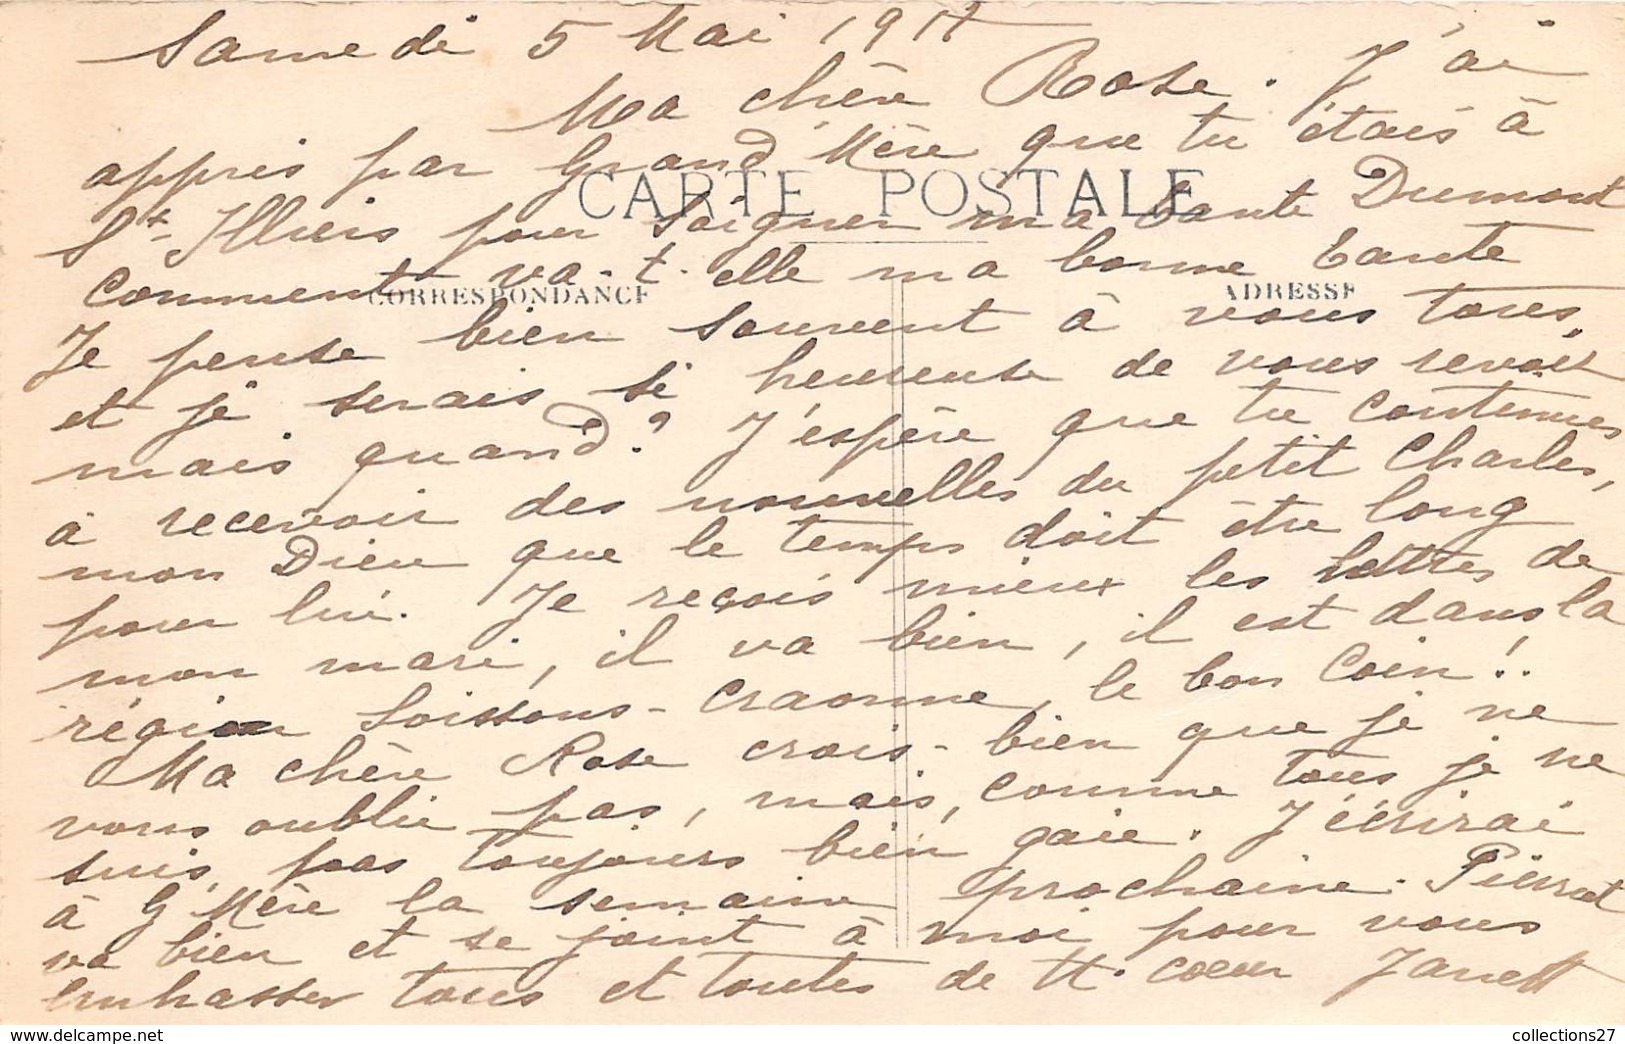 Samedi 5 Mai 1917
Ma chère Rose. J'ai
appris par Grand'Mère que tu étais à
CARTE POSTALE
St-Illiers pour soigner ma tante Dumont
comment va-t-elle ma bonne tante
CORRESPONDANCE
ADRESSE
Je pense bien souvent à vous tous,
et je serais si heureuse de vous revoir
mais quand? J'espère que tu continues
à recevoir des nouvelles du petit Charles,
mon Dieu que le temps doit être long
pour lui. Je reçois mieux les lettres de
mon mari, il va bien, il est dans la
région Soissons-Craonne, le bon Coin!..
Ma chère Rose crois-bien que je ne
vous oublie pas, mais, comme tous je ne
suis pas toujours bien gaie. J'écrirai
à G'Mère la semaine prochaine. Pierrot
va bien et se joint à moi pour vous
embrasser tous et toutes de tt. coeur
collections27